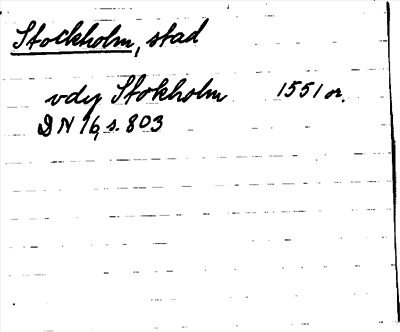 Stockholm, stad
vdy Stokholm 1551 or.
DN 16, s. 803